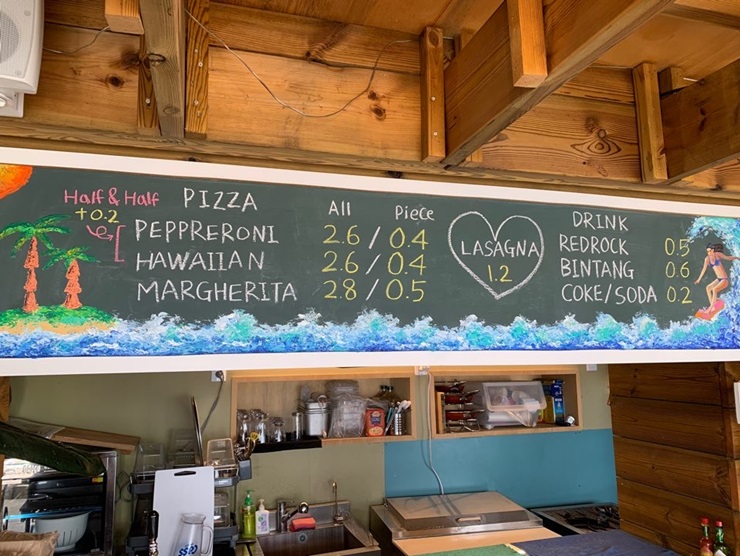 Half & Half PIZZA All Piece
+0.2
PEPPRERONI 2.6 / 0.4
HAWAIIAN 2.6 / 0.4
MARGHERITA 2.8 / 0.5
LASAGNA
1.2
DRINK
REDROCK 0.5
BINTANG 0.6
COKE/SODA 0.2